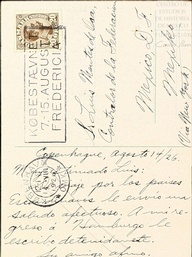 KØBESTÆVNE
7.-15. AUGUST
FREDERICIA
Sr. Luis Montes de Oca
Contraloria de la Federacion
Mexico D. F.
Mexico
Copenhague, Agosto 14/26.
Mi estimado Luis:
viaje por los países
Escandinavos le envío un
saludo afectuoso. A mi re-
greso a Hamburgo le
escribo detenidamente.
Su amigo afmo.